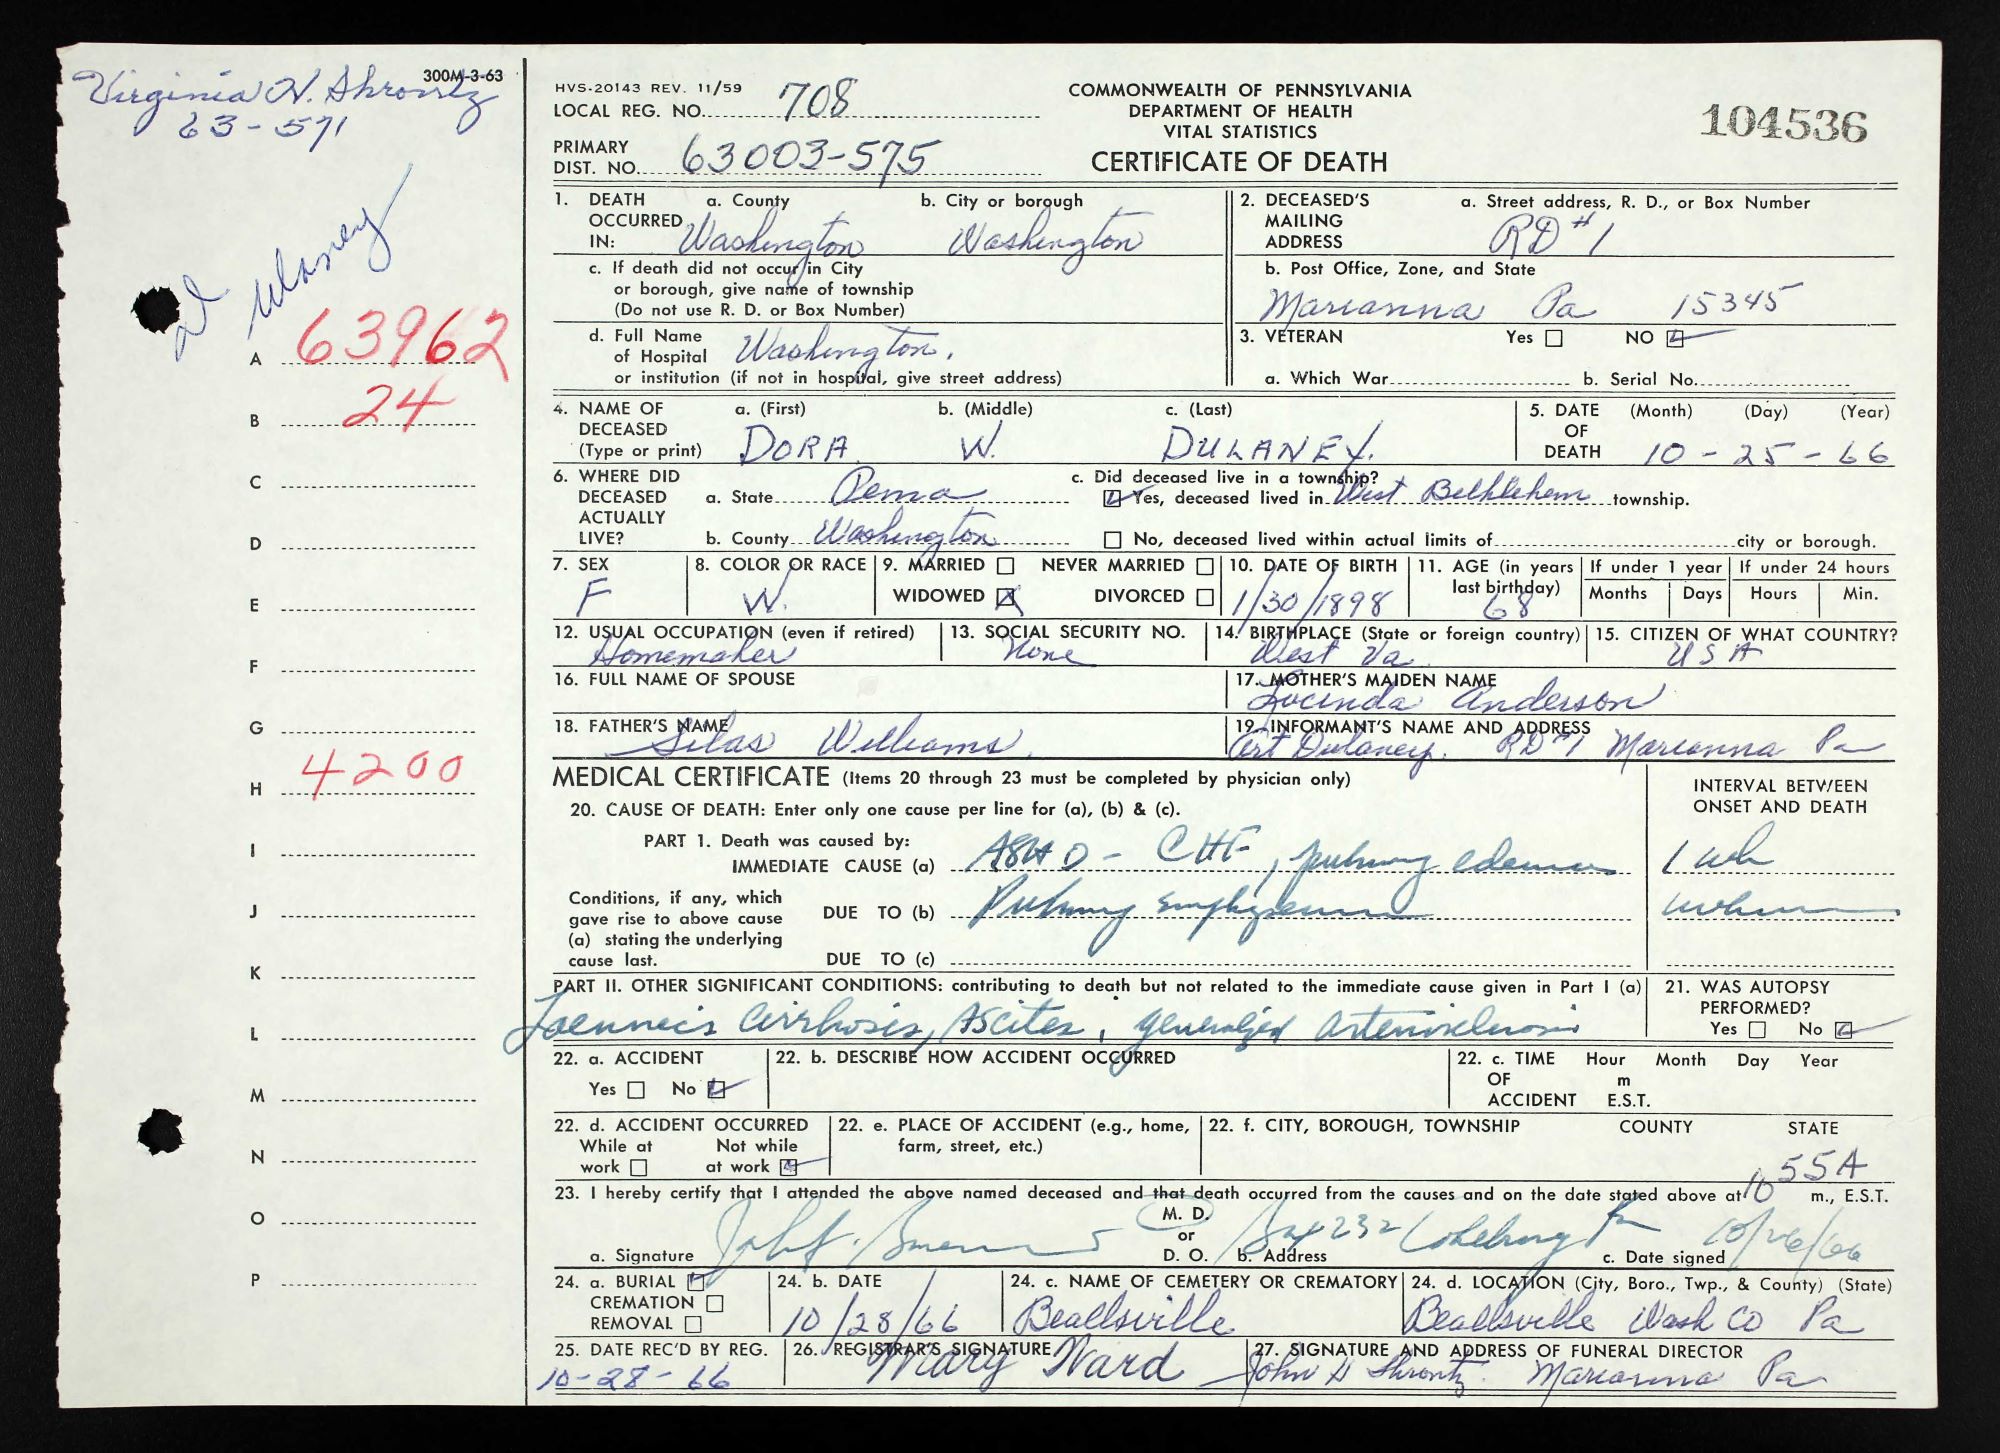 300M-3-63
Virginia H. Shrontz
63-571
Dulaney
A 63962
B 24
C
D
E
F
G
H 4200
I
J
K
L
M
N
O
P
HVS-20143 REV. 11/59
LOCAL REG. NO. 708
PRIMARY
DIST. NO. 63003-575
COMMONWEALTH OF PENNSYLVANIA
DEPARTMENT OF HEALTH
VITAL STATISTICS
CERTIFICATE OF DEATH
104536
1. DEATH OCCURRED IN: a. County Washington b. City or borough Washington
c. If death did not occur in City
or borough, give name of township
(Do not use R. D. or Box Number)
d. Full Name
of Hospital Washington.
or institution (if not in hospital, give street address)
2. DECEASED'S MAILING ADDRESS a. Street address, R. D., or Box Number
RD #1
b. Post Office, Zone, and State
Marianna Pa 15345
3. VETERAN Yes NO
a. Which War b. Serial No.
4. NAME OF DECEASED (Type or print) a. (First) b. (Middle) c. (Last)
DORA W. DULANEY.
5. DATE OF DEATH (Month) (Day) (Year)
10-25-66
6. WHERE DID DECEASED ACTUALLY LIVE?
a. State Penna
b. County Washington
c. Did deceased live in a township?
Yes, deceased lived in West Bethlehem township.
No, deceased lived within actual limits of city or borough.
7. SEX F
8. COLOR OR RACE W.
9. MARRIED NEVER MARRIED
WIDOWED X DIVORCED
10. DATE OF BIRTH 1/30/1898
11. AGE (in years last birthday) 68
If under 1 year Months Days
If under 24 hours Hours Min.
12. USUAL OCCUPATION (even if retired) Homemaker
13. SOCIAL SECURITY NO. None
14. BIRTHPLACE (State or foreign country) West Va
15. CITIZEN OF WHAT COUNTRY? USA
16. FULL NAME OF SPOUSE
17. MOTHER'S MAIDEN NAME Lucinda Anderson
18. FATHER'S NAME Silas Williams
19. INFORMANT'S NAME AND ADDRESS Art Dulaney. RD #1 Marianna Pa
MEDICAL CERTIFICATE (Items 20 through 23 must be completed by physician only)
INTERVAL BETWEEN ONSET AND DEATH
20. CAUSE OF DEATH: Enter only one cause per line for (a), (b) & (c).
PART 1. Death was caused by:
IMMEDIATE CAUSE (a) ASHD - CHF, pulmonary edema 1 wk
Conditions, if any, which
gave rise to above cause
(a) stating the underlying
cause last.
DUE TO (b) Pulmonary emphysema unknown
DUE TO (c)
PART II. OTHER SIGNIFICANT CONDITIONS: contributing to death but not related to the immediate cause given in Part I (a)
Laennec's Cirrhosis, Ascites, generalized arteriosclerosis
21. WAS AUTOPSY PERFORMED?
Yes No
22. a. ACCIDENT
Yes No
22. b. DESCRIBE HOW ACCIDENT OCCURRED
22. c. TIME OF ACCIDENT Hour Month Day Year
m
E.S.T.
22. d. ACCIDENT OCCURRED
While at work Not while at work
22. e. PLACE OF ACCIDENT (e.g., home, farm, street, etc.)
22. f. CITY, BOROUGH, TOWNSHIP COUNTY STATE
23. I hereby certify that I attended the above named deceased and that death occurred from the causes and on the date stated above at 10 55A m., E.S.T.
a. Signature M. D. or D. O. b. Address Box 232 Pa c. Date signed 10/26/66
24. a. BURIAL
CREMATION
REMOVAL
24. b. DATE 10/28/66
24. c. NAME OF CEMETERY OR CREMATORY Beallsville
24. d. LOCATION (City, Boro., Twp., & County) (State)
Beallsville Wash Co Pa
25. DATE REC'D BY REG. 10-28-66
26. REGISTRAR'S SIGNATURE Mary Ward
27. SIGNATURE AND ADDRESS OF FUNERAL DIRECTOR
John H Shrontz. Marianna Pa